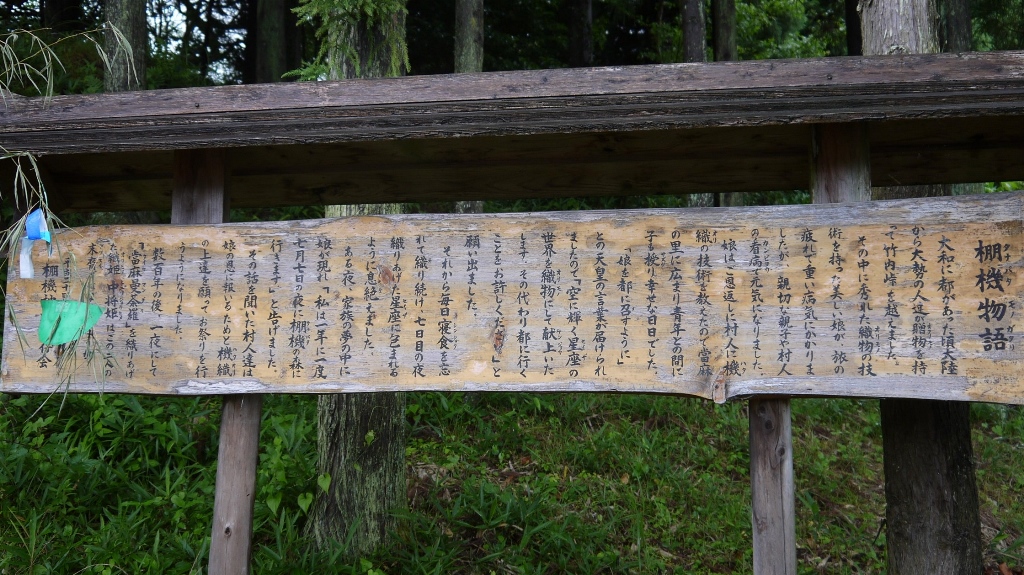 棚機物語
大和に都があった頃大陸
から大勢の人達が贈物を持
って竹内峠を越えました。
その中に秀れた織物の技
術を持った美しい娘が、旅の
疲れで重い病気にかかりま
したが、親切な親子や村人
の看病で元気になりました。
娘はご恩返しに村人に機
織の技術を教えたので當麻
の里に広まり青年との間に
子も授り幸せな日々でした。
「娘を都に召すように」
との天皇の言葉が届けられ
ましたので「空に輝く星座の
世界を織物にして献上いた
します、その代わり都に行く
ことをお許しください。」と
願い出ました。
それから毎日寝食を忘
れて織り続け、七日目の夜
織りあがった星座に包まれる
ように息絶えました。
ある夜、家族の夢の中に
娘が現れ「私は一年に一度
七月七日の夜に棚機の森に
行きます」と告げました。
その話を聞いた村人達は
娘の恩に報いるためと機織
の上達を願ってお祭りを行
うようになりました。
数百年の後、一夜にして
「當麻曼荼羅」を織りあげ
た織姫・中将姫はこの二人の
末
棚機